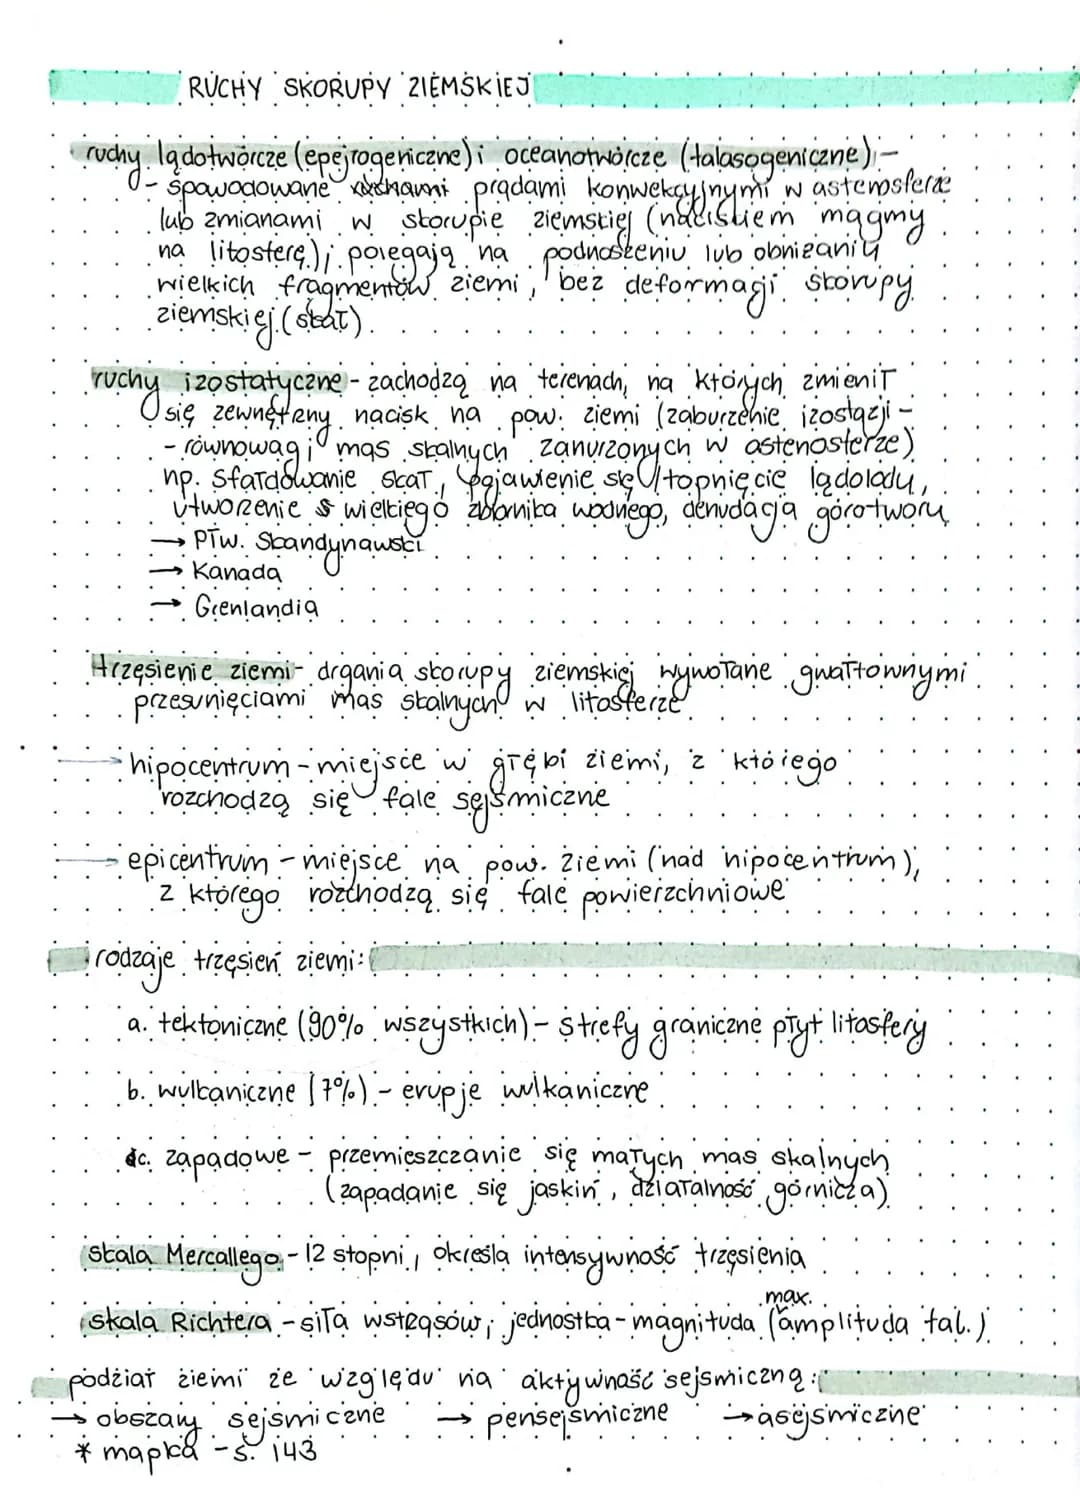 RUCHY SKORUPY ZIEMSKIEJ
ruchy lądotwórcze (epejrogeniczne) i oceanotwórcze (talasogeniczne) -
- spowodowane prądami konwekcyjnymi w astenosferze
lub zmianami w skorupie ziemskiej (naciskiem magmy
na litosferę); polegają na podnoszeniu lub obniżaniu
wielkich fragmentów ziemi, bez deformacji skorupy
ziemskiej (skał)
ruchy izostatyczne - zachodzą na terenach, na których zmienił
się zewnętrzny nacisk na pow. ziemi (zaburzenie izostazji -
- równowagi mas skalnych zanurzonych w astenosferze)
np. sfałdowanie skał, pojawienie się/topnięcie lądolodu,
utworzenie wielkiego zbiornika wodnego, denudacja górotworu
→ Płw. Skandynawski
→ Kanada
→ Grenlandia
trzęsienie ziemi - drgania skorupy ziemskiej wywołane gwałtownymi
przesunięciami mas skalnych w litosferze
→ hipocentrum - miejsce w głębi ziemi, z którego
rozchodzą się fale sejsmiczne
→ epicentrum - miejsce na pow. ziemi (nad hipocentrum),
z którego rozchodzą się fale powierzchniowe
rodzaje trzęsień ziemi:
a. tektoniczne (90% wszystkich) - strefy graniczne płyt litosfery
b. wulkaniczne (7%) - erupcje wulkaniczne
c. zapadowe - przemieszczanie się małych mas skalnych
(zapadanie się jaskiń, działalność górnicza)
skala Mercallego - 12 stopni, określa intensywność trzęsienia
max.
skala Richtera - siła wstrząsów; jednostka - magnituda (amplituda fal.)
podział ziemi ze względu na aktywność sejsmiczną:
→ obszary sejsmiczne → pensejsmiczne → asejsmiczne
* mapka - s. 143